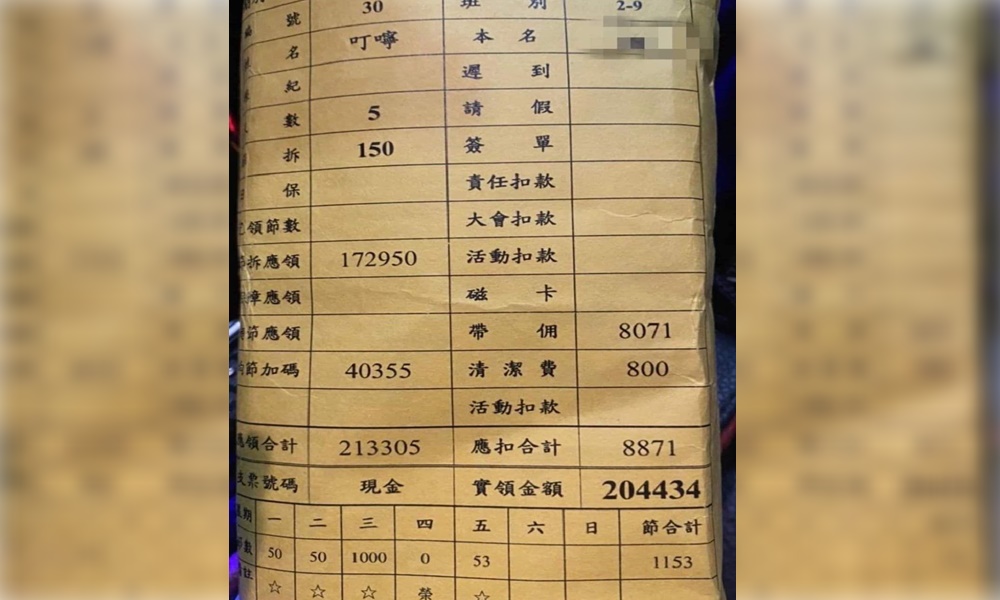 號 30 班 別 2-9
名 叮嚀 本 名
紀 遲 到
數 5 請 假
拆 150 簽 單
保 責任扣款
領節數 大會扣款
拆應領 172950 活動扣款
應領 磁 卡
節應領 帶 佣 8071
節加碼 40355 清 潔 費 800
活動扣款
應領合計 213305 應扣合計 8871
支票號碼 現金 實領金額 204434
星期 一 二 三 四 五 六 日 節合計
節數 50 50 1000 0 53 1153
備註 ☆ ☆ ☆ 榮 ☆